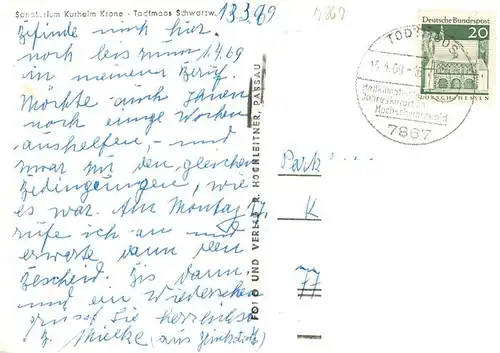 Sanatorium Kurheim Krone - Todtmoos Schwarzw.
13.3.69
Befinde mich hier
noch bis zum 1.4.69
in meinem Beruf.
Möchte auch Ihnen
noch einige Wochen
aushelfen, - und
zwar zu den gleichen
Bedingungen, wie
es war. Am Montag 17.
rufe ich an und
erwarte dann den
Bescheid. Bis dann
und ein Wiedersehen
grüsst Sie herzlichst
Mielke (aus
FOTO UND VERLAG R. HOCHLEITNER, PASSAU
Park
K
77
7867
TODTMOOS
Heilklimatischer
Jahreskurort im
Hochschwarzwald
7867
Deutsche Bundespost
20
LORSCH/HESSEN